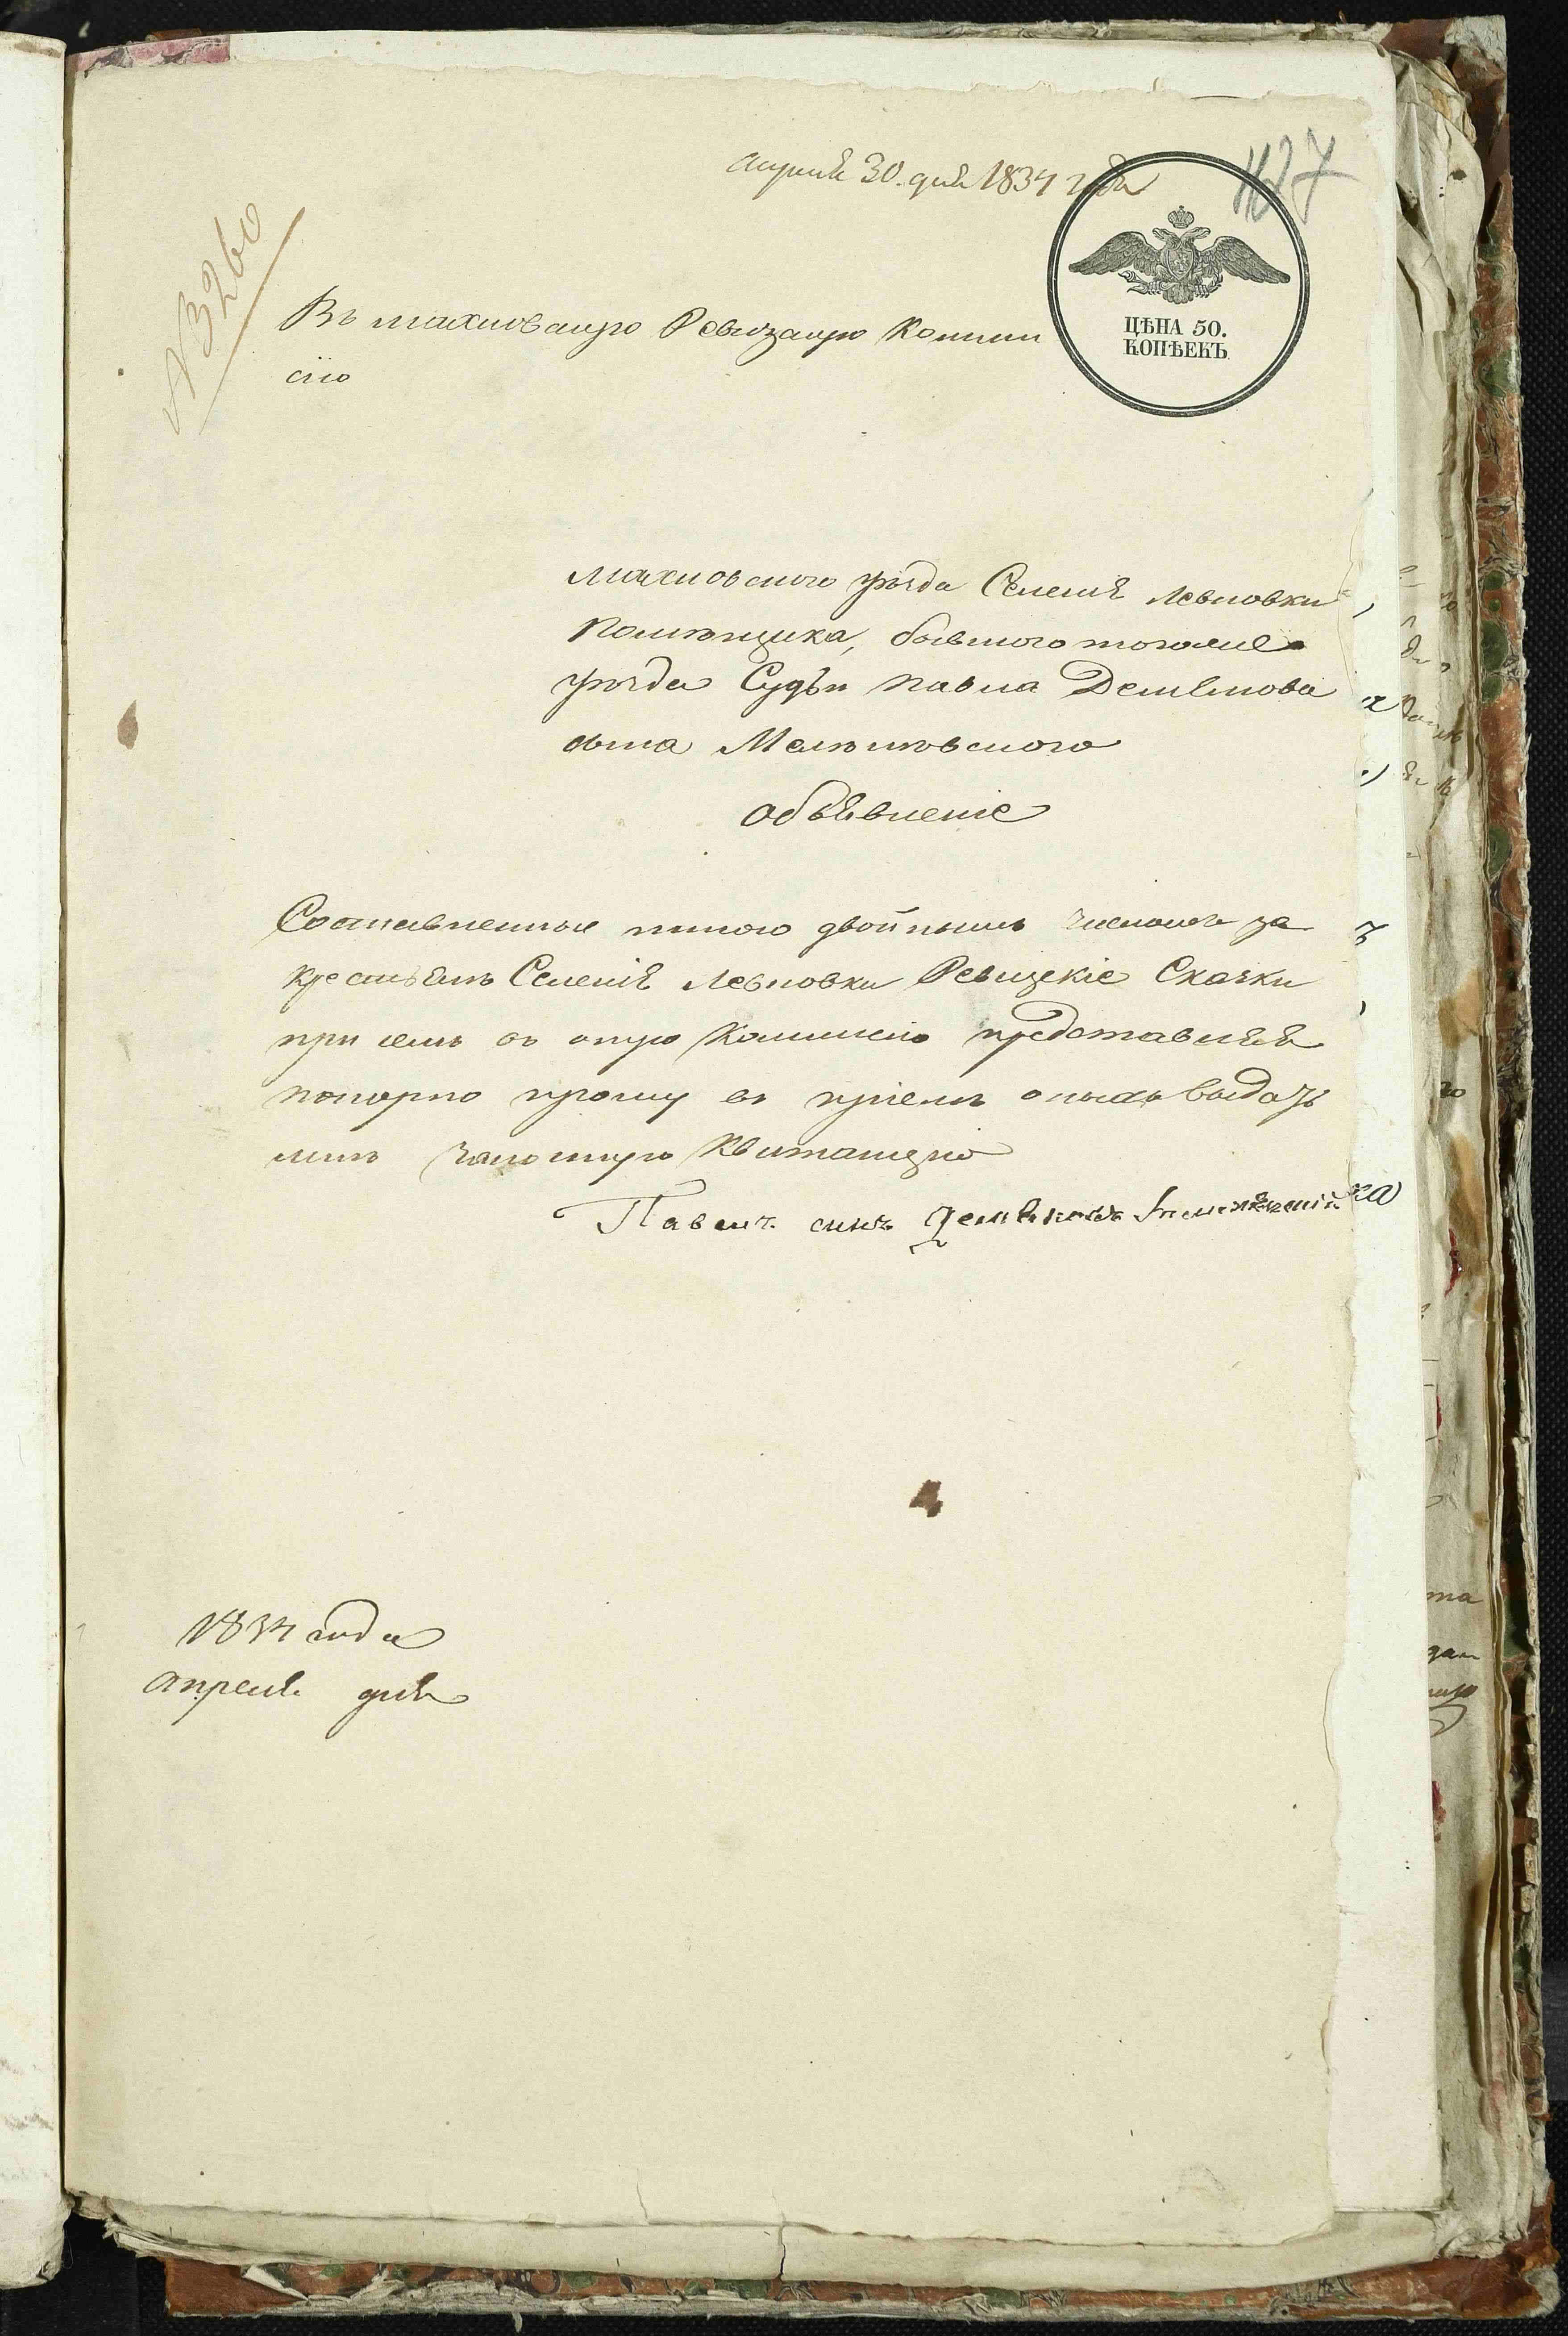 апреля 30. дня 1834 года
427
№ 3260
ЦѢНА 50.
КОПѢЕКЪ.
Въ махновскую Ревизскую Комми
сію
Махновскаго уѣзда Селенія Левковки
Помѣщика, бывшого тогоже
уѣзда Судьи Павла Демьянова
сына
объявленіе
Составленные мною двойнымъ числомъ за
крестьянъ Селенія Левковки Ревизскіе Сказки
при семъ въ оную Коммисію представляя
покорно прошу въ пріемѣ оныхъ выдать
мнѣ законную Квитанцію
Павелъ синъ Демьяновъ
1834 года
апреля дня